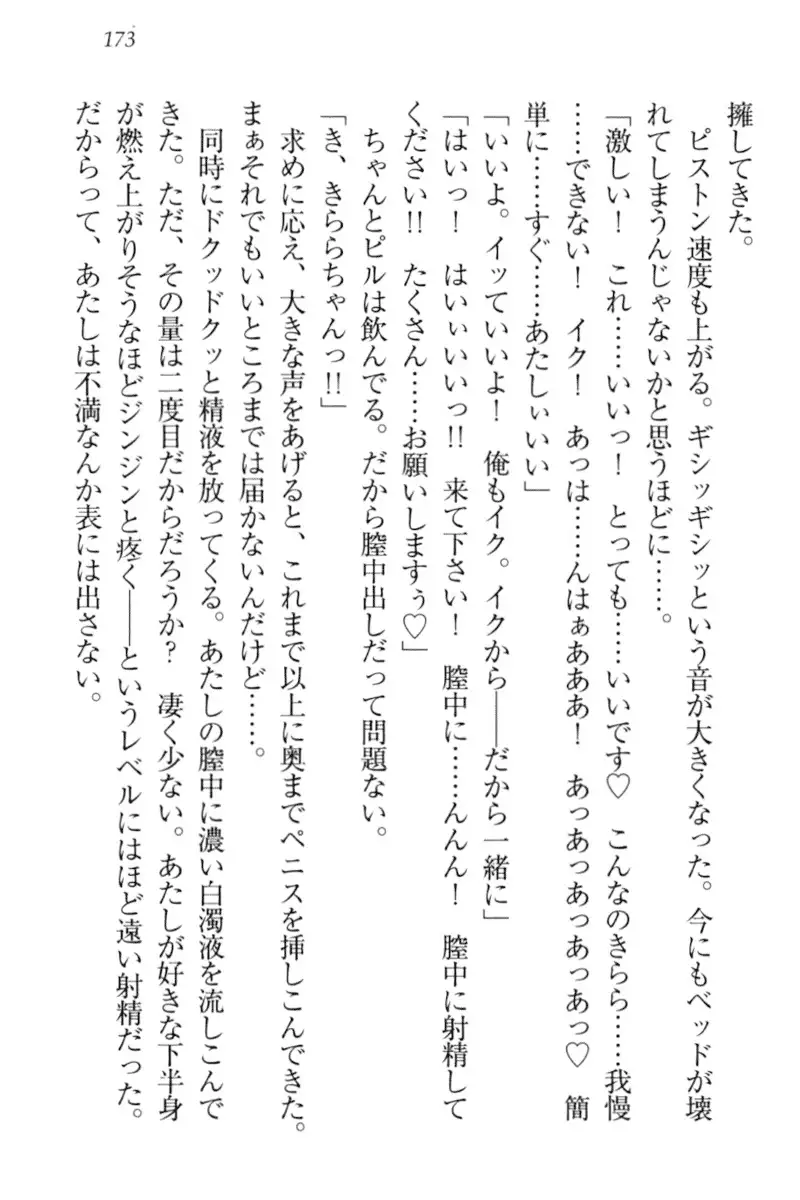 173
擁してきた。
　ピストン速度も上がる。ギシッギシッという音が大きくなった。今にもベッドが壊
れてしまうんじゃないかと思うほどに……。
「激しい！　これ……いいっ！　とっても……いいです♡　こんなのきらら……我慢
……できない！　イク！　あっは……んはぁあああ！　あっあっあっあっあっ♡　簡
単に……すぐ……あたしぃいい」
「いいよ。イッていいよ！　俺もイク。イクから――だから一緒に」
「はいっ！　はいぃいいっ!!　来て下さい！　膣中に……んんん！　膣中に射精して
ください!!　たくさん……お願いしますぅ♡」
　ちゃんとピルは飲んでる。だから膣中出しだって問題ない。
「き、きららちゃんっ!!」
　求めに応え、大きな声をあげると、これまで以上に奥までペニスを挿しこんできた。
まぁそれでもいいところまでは届かないんだけど……。
　同時にドクッドクッと精液を放ってくる。あたしの膣中に濃い白濁液を流しこんで
きた。ただ、その量は二度目だからだろうか？　凄く少ない。あたしが好きな下半身
が燃え上がりそうなほどジンジンと疼く――というレベルにはほど遠い射精だった。
だからって、あたしは不満なんか表には出さない。